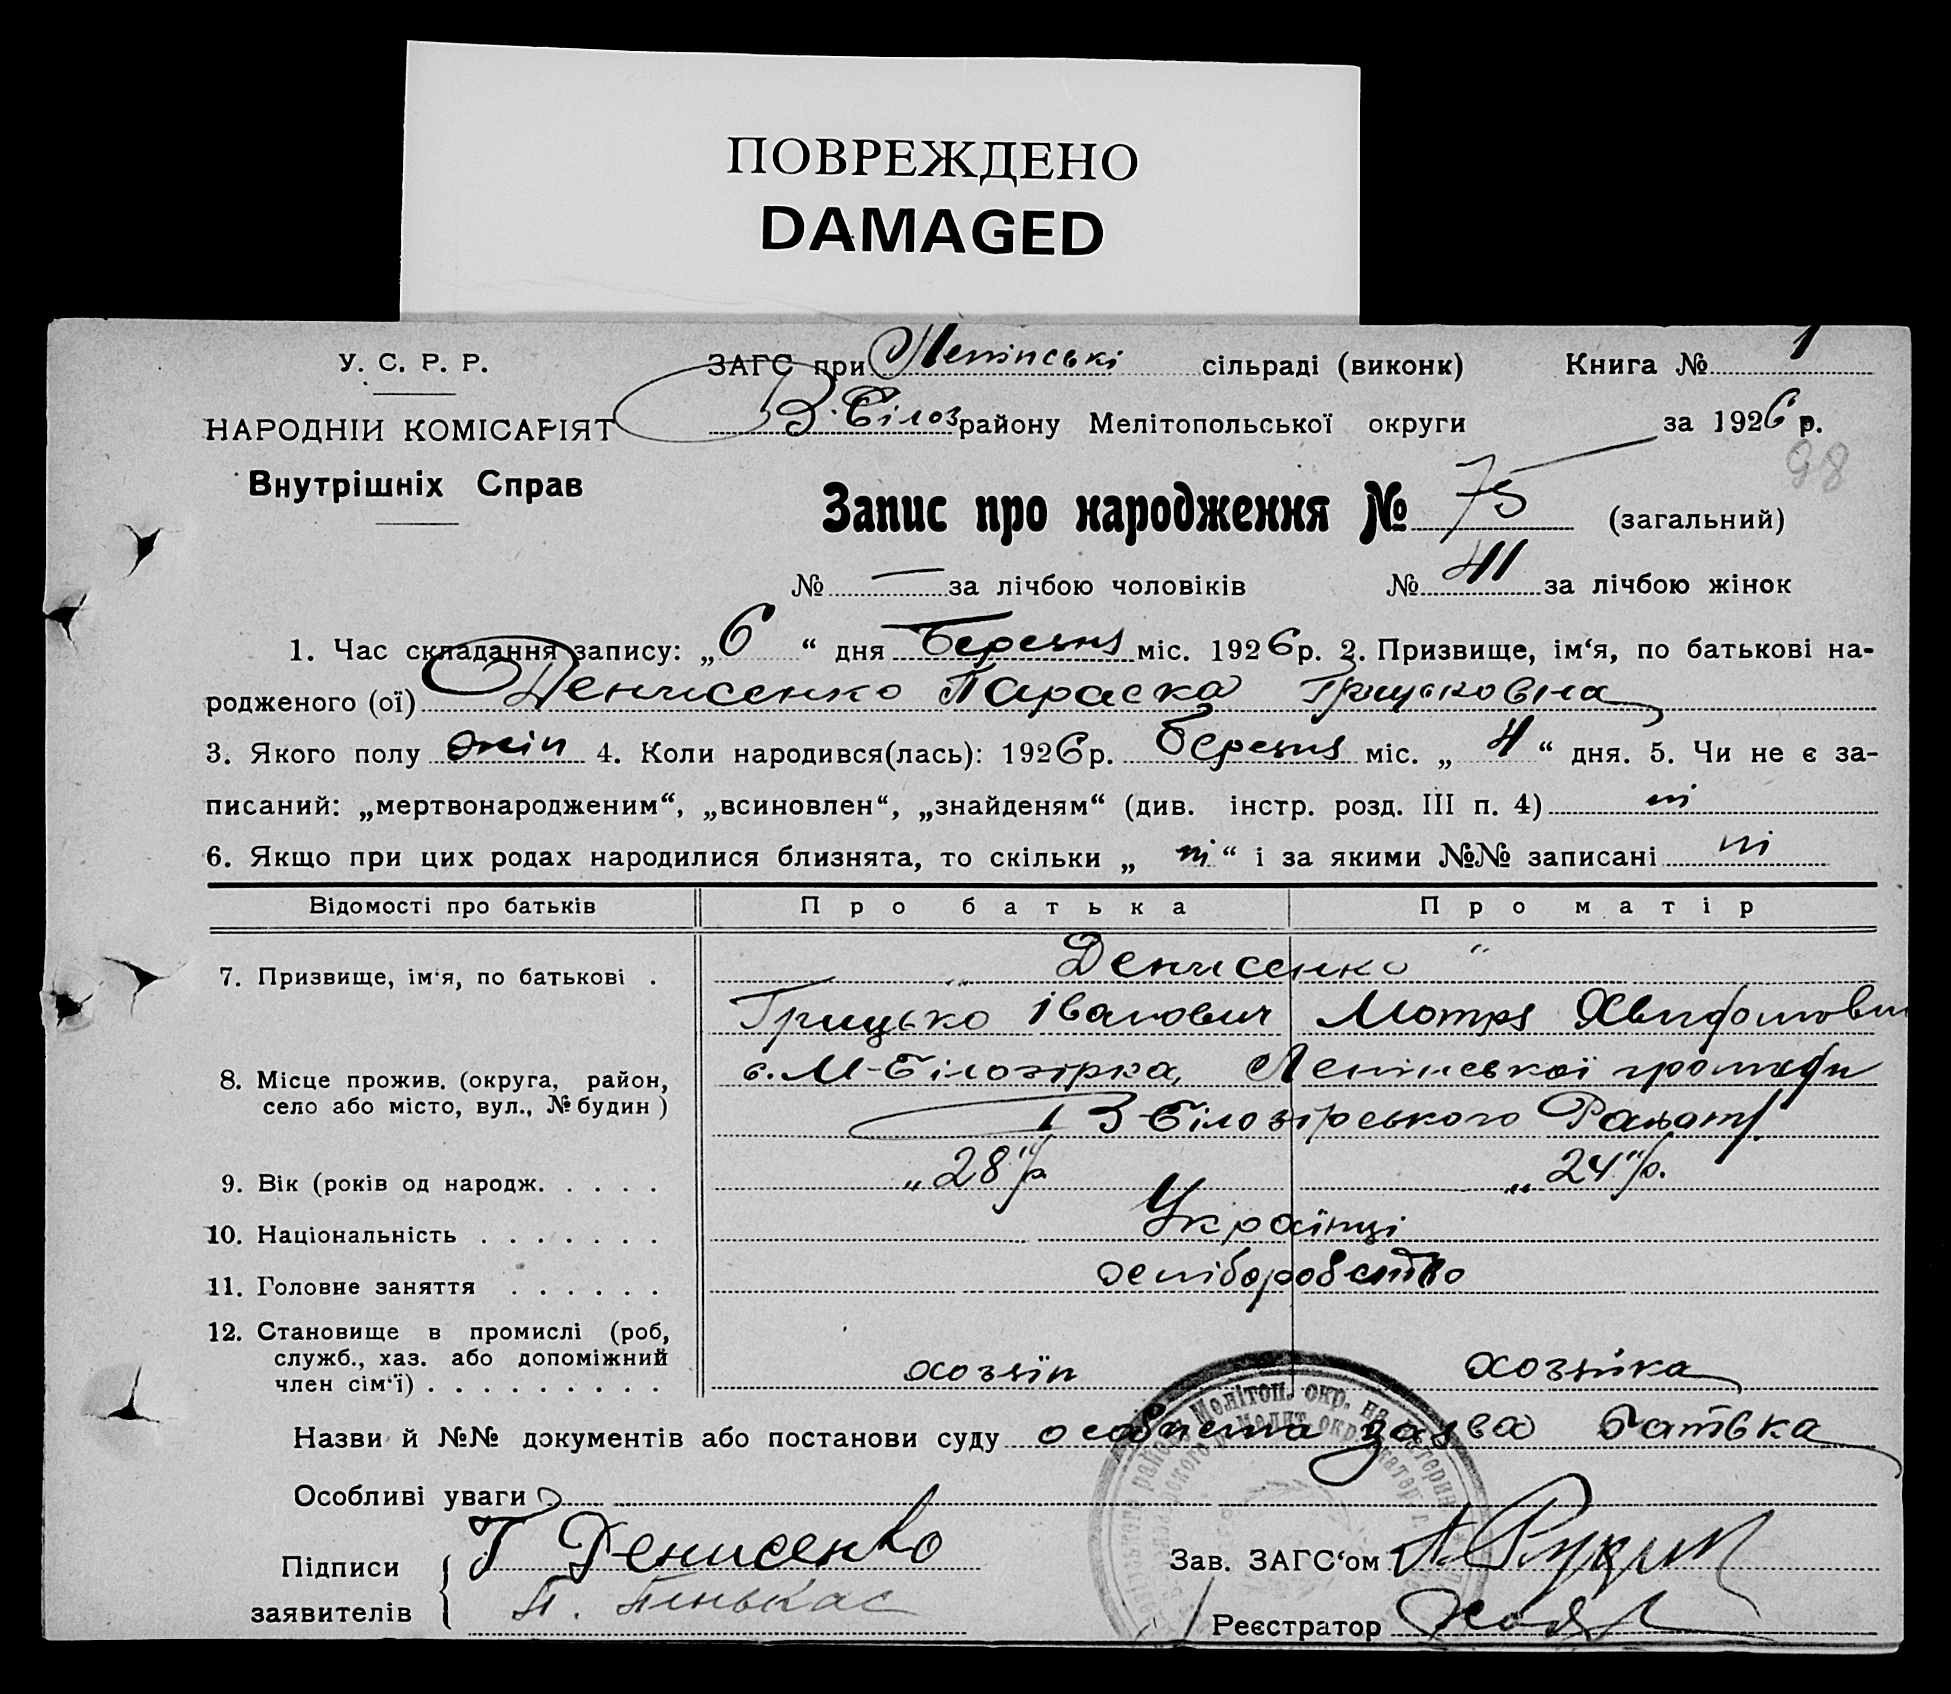 ПОВРЕЖДЕНО
DAMAGED
У. С. Р. Р.
ЗАГС при Ленінські сільраді (виконк) Книга № 1
НАРОДНІЙ КОМІСАРІЯТ
В. Білоз району Мелітопольської округи за 1926 р.
98
Внутрішніх Справ
Запис про народження № 75 (загальний)
№ — за лічбою чоловіків № 41 за лічбою жінок
1. Час складання запису: „6“ дня Березня міс. 1926 р. 2. Призвище, ім‘я, по батькові на-
родженого (ої) Денисенко Параска Грицьковна
3. Якого полу жін 4. Коли народився(лась): 1926 р. березня міс. „4“ дня. 5. Чи не є за-
писаний: „мертвонародженим“, „всиновлен“, „знайденям“ (див. інстр. розд. III п. 4) ні
6. Якщо при цих родах народилися близнята, то скільки „ні“ і за якими №№ записані ні
Відомості про батьків Про батька Про матір
7. Призвище, ім‘я, по батькові . „ Денисенко “
Грицько Іванович Мотря
8. Місце прожив. (округа, район, с. М-Білозірка, Ленінської громади
село або місто, вул., № будин) Білозірського
9. Вік (років од народж. . . . . „28“ р. „24“ р.
10. Національність . . . . . . . Українці
11. Головне заняття . . . . . . хеліборобство
12. Становище в промислі (роб,
служб., хаз. або допоміжний хозяїн хозяйка
член сім‘ї) . . . . . . . . .
Назви й №№ документів або постанови суду особиста заява батька
Особливі уваги
Підписи Г Денисенко Зав. ЗАГС‘ом
заявителів П. Реєстратор